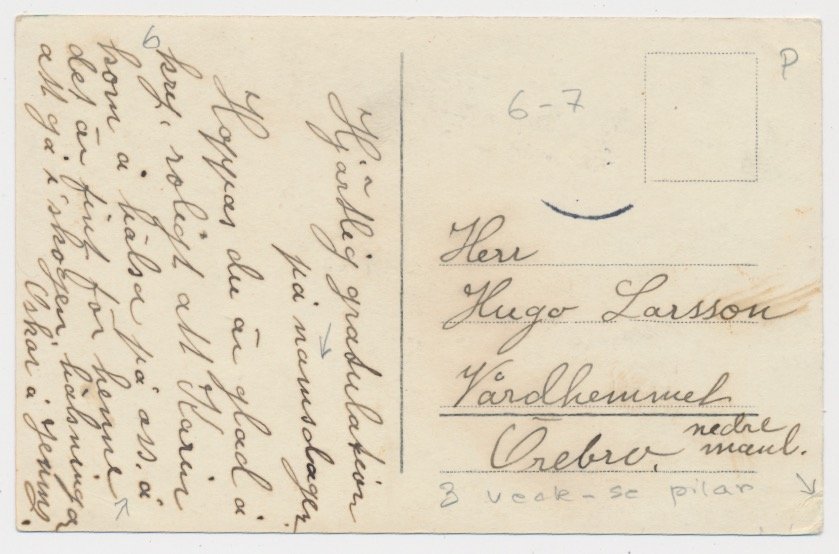 Hjärtlig gratulation
på namsdagen
Hoppas du är glad å
kry, roligt att Karin
kom å hälsa på oss. å
det är fint för henne
att gå i skogen, hälsninga
Oskar å Jenny.
P
6-7
Herr
Hugo Larsson
Vårdhemmet
Örebro.
nedre
3 veck-se pilar